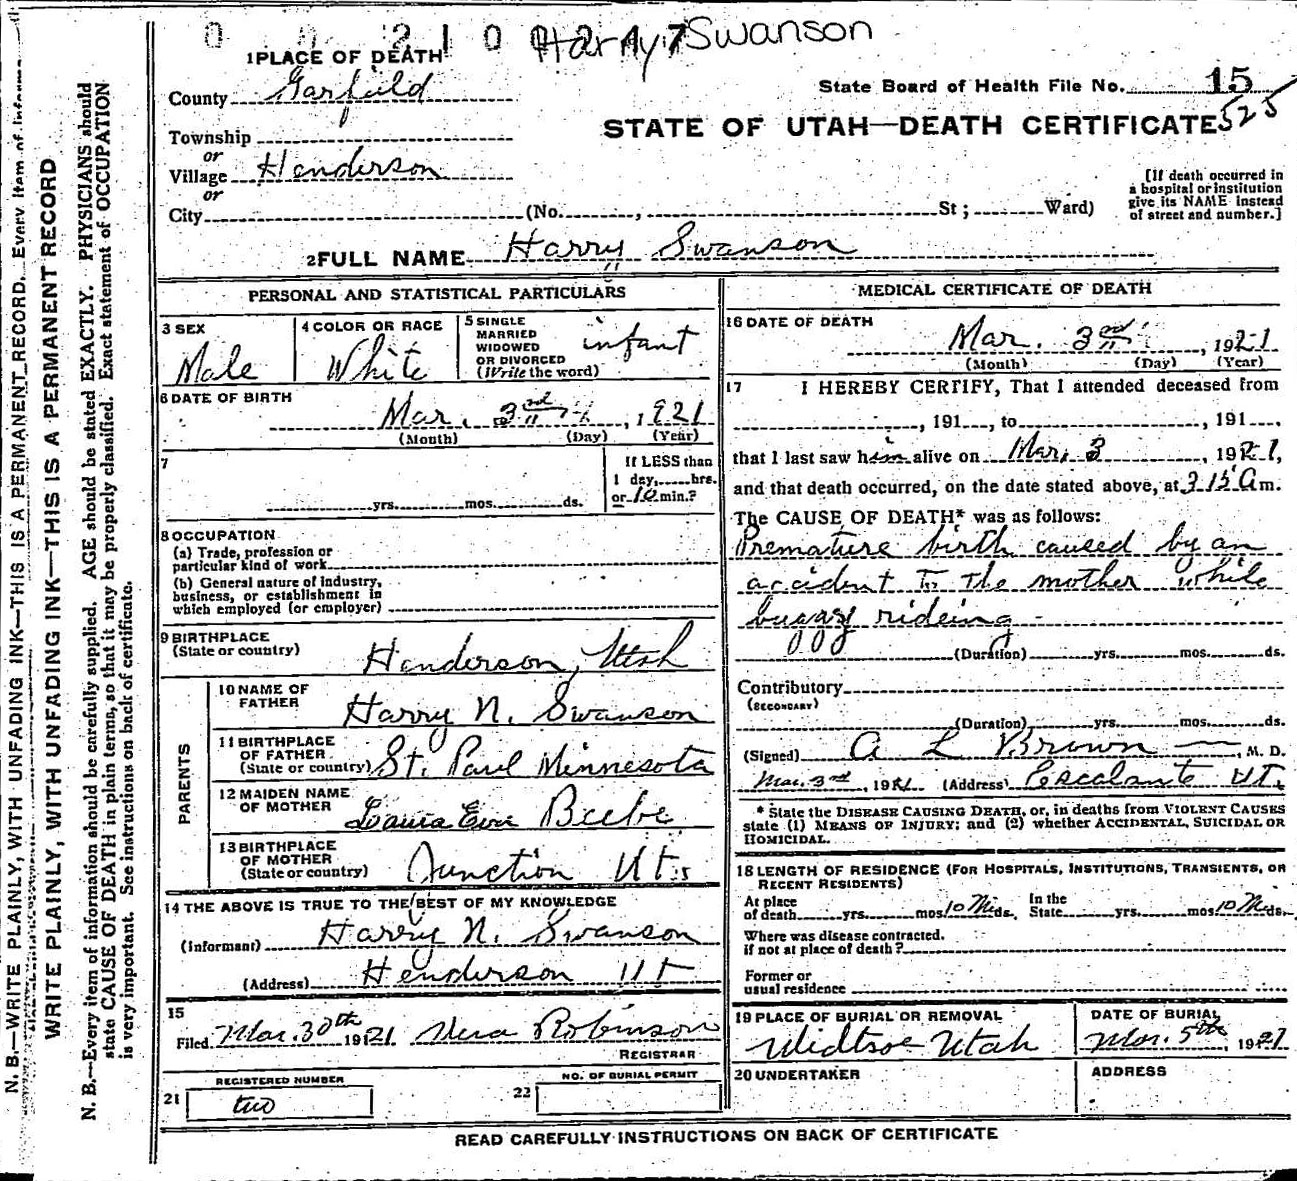 0 0 2 1 0 0 2 4 7
Harry Swanson
1 PLACE OF DEATH
County Garfield
State Board of Health File No. 15
525
STATE OF UTAH—DEATH CERTIFICATE
Township
or
Village Henderson
or
City (No. , St ; Ward)
[If death occurred in
a hospital or institution
give its NAME instead
of street and number.]
2 FULL NAME Harry Swanson
PERSONAL AND STATISTICAL PARTICULARS
3 SEX
Male
4 COLOR OR RACE
White
5 SINGLE
MARRIED
WIDOWED
OR DIVORCED
(Write the word)
infant
6 DATE OF BIRTH
Mar. 3rd, 1921
(Month) (Day) (Year)
7
yrs. mos. ds.
If LESS than
1 day, hrs.
or 10 min.?
8 OCCUPATION
(a) Trade, profession or
particular kind of work
(b) General nature of industry,
business, or establishment in
which employed (or employer)
9 BIRTHPLACE
(State or country)
Henderson, Utah
PARENTS
10 NAME OF
FATHER
Harry N. Swanson
11 BIRTHPLACE
OF FATHER
(State or country) St. Paul Minnesota
12 MAIDEN NAME
OF MOTHER
Beebe
13 BIRTHPLACE
OF MOTHER
(State or country)
Junction Ut.
14 THE ABOVE IS TRUE TO THE BEST OF MY KNOWLEDGE
(Informant) Harry N. Swanson
(Address) Henderson Ut
15
Filed Mar. 30th 1921 Vera Robinson
REGISTRAR
REGISTERED NUMBER
21 two
NO. OF BURIAL PERMIT
22
MEDICAL CERTIFICATE OF DEATH
16 DATE OF DEATH
Mar. 3rd, 1921
(Month) (Day) (Year)
17 I HEREBY CERTIFY, That I attended deceased from
, 191 , to , 191 ,
that I last saw him alive on Mar. 3, 1921,
and that death occurred, on the date stated above, at 3 15 A m.
The CAUSE OF DEATH* was as follows:
Premature birth caused by an
accident to the mother while
buggy rideing
(Duration) yrs. mos. ds.
Contributory
(SECONDARY)
(Duration) yrs. mos. ds.
(Signed) A L Brown, M. D.
Mar. 3rd, 1921 (Address) Escalante Ut.
* State the DISEASE CAUSING DEATH, or, in deaths from VIOLENT CAUSES
state (1) MEANS OF INJURY; and (2) whether ACCIDENTAL, SUICIDAL OR
HOMICIDAL.
18 LENGTH OF RESIDENCE (FOR HOSPITALS, INSTITUTIONS, TRANSIENTS, OR
RECENT RESIDENTS)
At place
of death yrs. mos. 10 Mi ds. In the
State yrs. mos. 10 Mi ds.
Where was disease contracted,
if not at place of death?
Former or
usual residence
19 PLACE OF BURIAL OR REMOVAL
Widtsoe Utah
DATE OF BURIAL
Mar. 5th, 1921
20 UNDERTAKER
ADDRESS
READ CAREFULLY INSTRUCTIONS ON BACK OF CERTIFICATE
N. B.—WRITE PLAINLY, WITH UNFADING INK—THIS IS A PERMANENT RECORD. Every item of
WRITE PLAINLY, WITH UNFADING INK—THIS IS A PERMANENT RECORD
N. B.—Every item of information should be carefully supplied. AGE should be stated EXACTLY. PHYSICIANS should
state CAUSE OF DEATH in plain terms, so that it may be properly classified. Exact statement of OCCUPATION
is very important. See instructions on back of certificate.